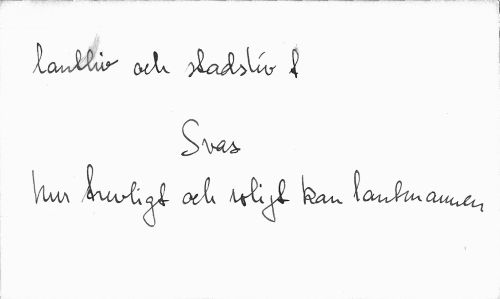 lantliv och stadsliv f
Svas
hur trevligt och roligt kan lantmannen